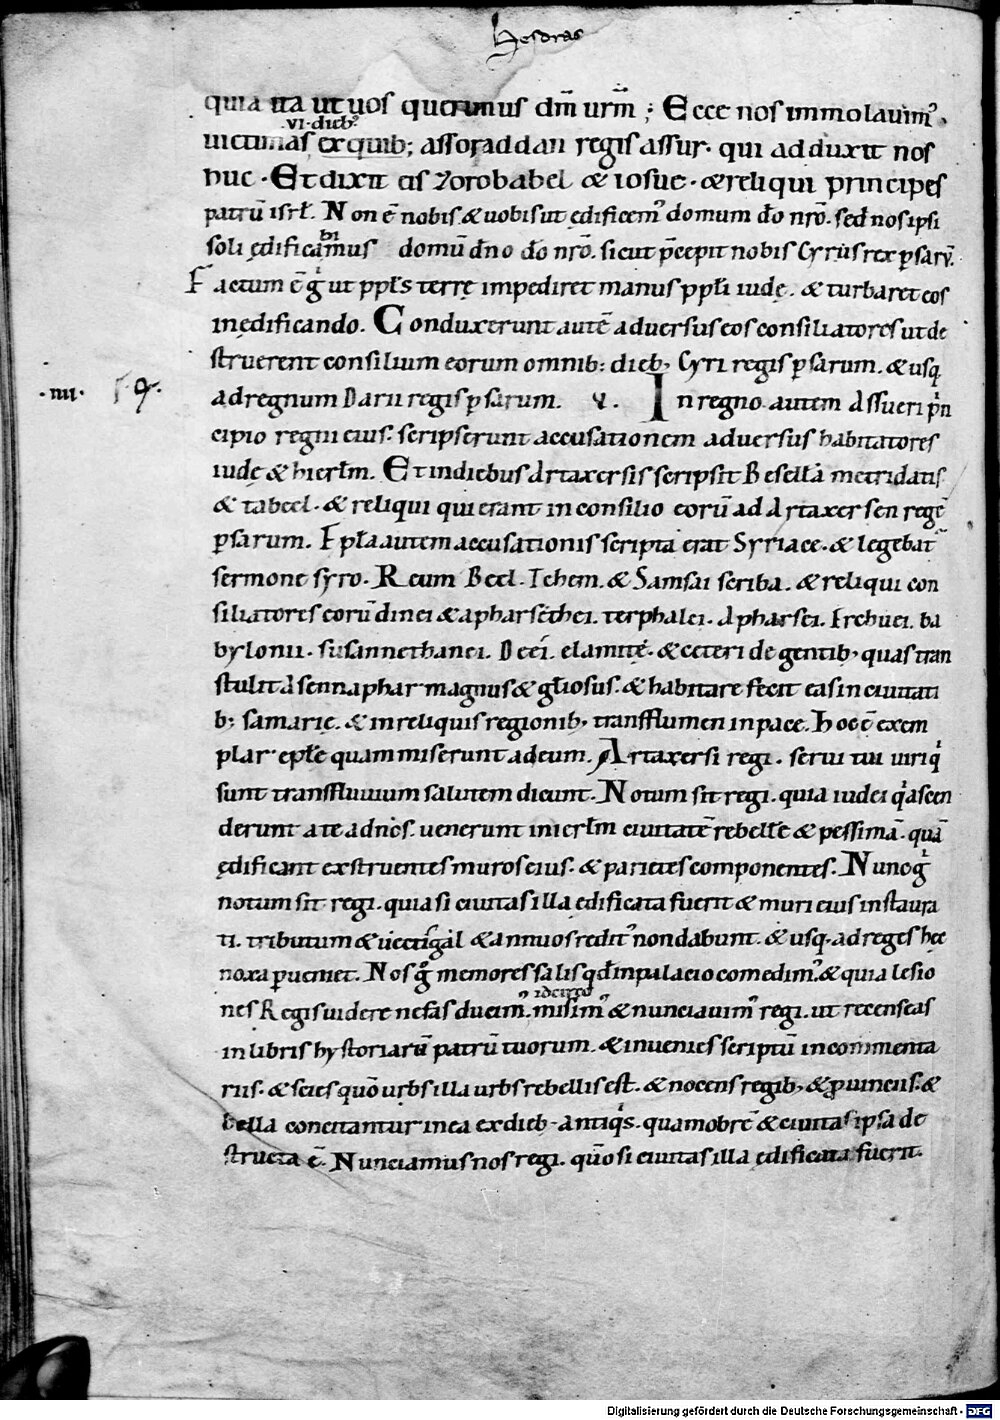 Hesdras
quia ita ut uos querimus dm̄ urm̄; Ecce nos immolauim᾿
.VI. dieb᾿
uictimas ex quib; assoraddan regis assur. qui adduxit nos
huc. Et dixit eis Zorobabel & iosue. & reliqui principes
patrū isrł. Non ē nobis & uobis ut ędificem᾿ domum dō nrō. sed nos ipsi
bi
soli ędificamus domū dn̄o dō nrō. sicut p̄cepit nobis Cyrus rex psarū.
Factum ē g ut ppłs terrę impediret manus ppłi iudę. & turbaret eos
in ędificando. Conduxerunt autē aduersus eos consiliatores ut de
struerent consilium eorum omnib; dieb; Cyri regis psarum. & usq
.IIII. ad regnum Darii regis psarum. V. In regno autem Assueri prin
cipio regni eius. scripserunt accusationem aduersus habitatores
iudę & hierłm. Et in diebus Artaxersis scripsit Besellā metridatis
& tabeel. & reliqui qui erant in consilio eorū ad Artaxersen regē
psarum. Epła autem accusationis scripta erat Syriace. & legebat᾿
sermone syro. Reum Beel. Tehem. & Samsai scriba. & reliqui con
siliatores eorū dinei & apharsethei. terphalei. Apharsei. Erchuei. ba
bylonii. susannethanei. Deei. elamitę. & ceteri de gentib; quas tran
stulit Asennaphar magnus & głiosus. & habitare fecit eas in ciuitati
b; samarię. & in reliquis regionib; transflumen in pace. Hoc ē exem
plar epłe quam miserunt ad eum. Artaxersi regi. serui tui uiri q
sunt transfluuium salutem dicunt. Notum sit regi. quia iudei q ascen
derunt a te ad nos. uenerunt in ierłm ciuitatē rebellē & pessimā. quā
ędificant exstruentes muros eius. & parietes componentes. Nunc g
notum sit regi. quia si ciuitas illa edificata fuerit & muri eius instaura
ti. tributum & uectigal & annuos redit᾿ non dabunt. & usq. ad reges hec
noxa pueniet. Nos g memores salis qd in palacio comedim᾿. & quia lesio
idcirco
nes Regis uidere nefas ducim᾿. misim᾿ & nunciauim᾿ regi. ut recenseas
in libris hystoriarū patrū tuorum. & inuenies scriptū in commenta
riis. & scies quō urbs illa urbs rebellis est. & nocens regib; & prouinciis. &
bella concitantur in ea ex dieb. antiqs. quamobrē & ciuitas ipsa de
structa ē. Nunciamus nos regi. quō si ciuitas illa ędificata fuerit.
Digitalisierung gefördert durch die Deutsche Forschungsgemeinschaft - DFG